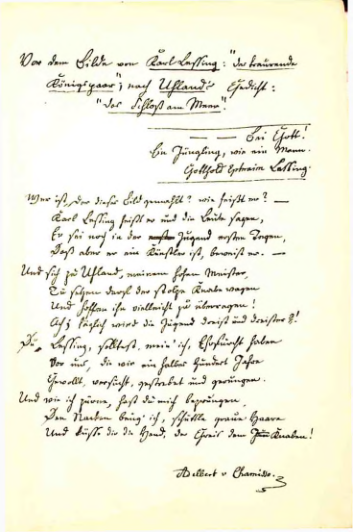 Vor dem Bilde von Karl Lessing: "das traurende
Königspaar", nach Uhland's Gedicht:
"Das Schloß am Meer".
— — Bei Gott!
Ein Jüngling, wie ein Mann.
Gotthold Ephraim Lessing.
Wer ist, der dieses Bild gemahlt? wie heißt er? —
Karl Lessing heißt er und die Leute sagen,
Er sei noch in der Jugend ersten Tagen,
Daß aber er ein Künstler ist, beweist er. —
Und sich zu Uhland, meinem hohen Meister,
Zu schwingen darf der stolze Knabe wagen
Und hoffen ihn vielleicht zu überragen!
Ach täglich wird die Jugend dreist und dreister!
Du, Lessing, solltest, mein' ich, Ehrfurcht haben
Vor uns, die wir ein halbes Hundert Jahre
Gewollt, versucht, gestrebet und gerungen.
Und wie ich zürne, hast du mich bezwungen.
Den Nacken beug' ich, schüttle graue Haare
Und küsse dir die Hand, der Greis dem Knaben!
Adelbert v Chamisso.